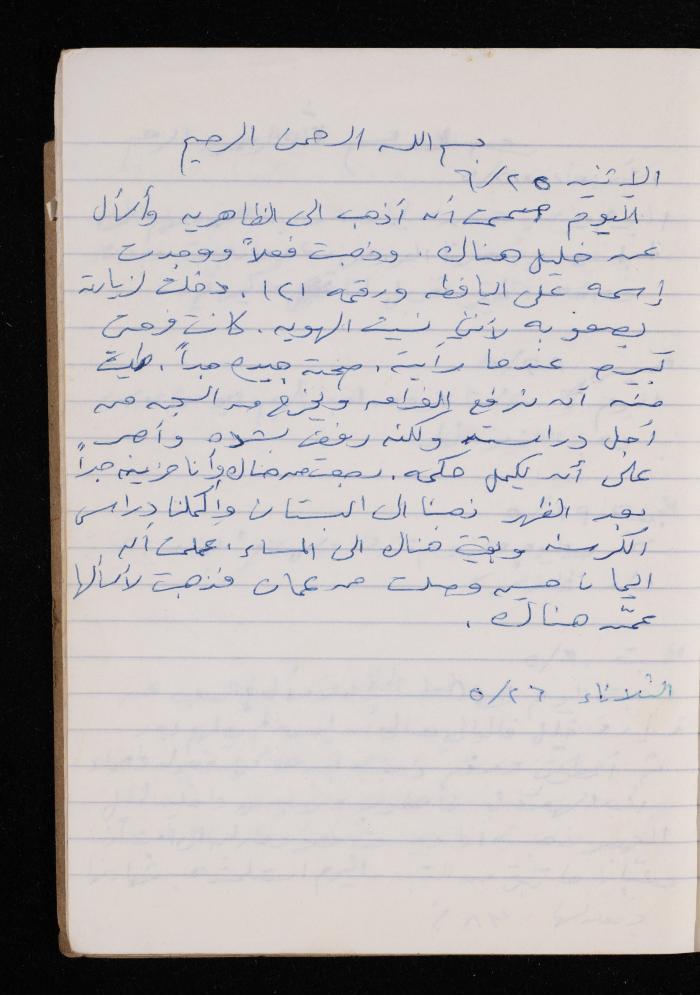 بسم الله الرحمن الرحيم
الاثنين ٦/٢٥
اليوم صممت أن أذهب الى الظاهريه وأسأل
عن خليل هناك. وذهبت فعلاً ووجدت
إسمه على اليافطه ورقمه ١٢١. دخلت لزيارته
بصعوبه لأنني نسيت الهويه. كانت فرحتي
كبيره عندما رأيته. صحته جيده جداً. طلبت
منه أن ندفع الغرامه ويخرج من السجن من
أجل دراسته ولكنه رفض بشده وأصر
على أن يكمل حكمه. رجعت من هناك وأنا حزينه جداً
بعد الظهر ذهبنا الى البستان وأكملنا دراس
الكرسنه وبقيت هناك الى المساء. علمت أن
ايمان حسين وصلت من عمان فذهبت لأسألها
عمَّن هناك.
الثلاثاء ٥/٢٦